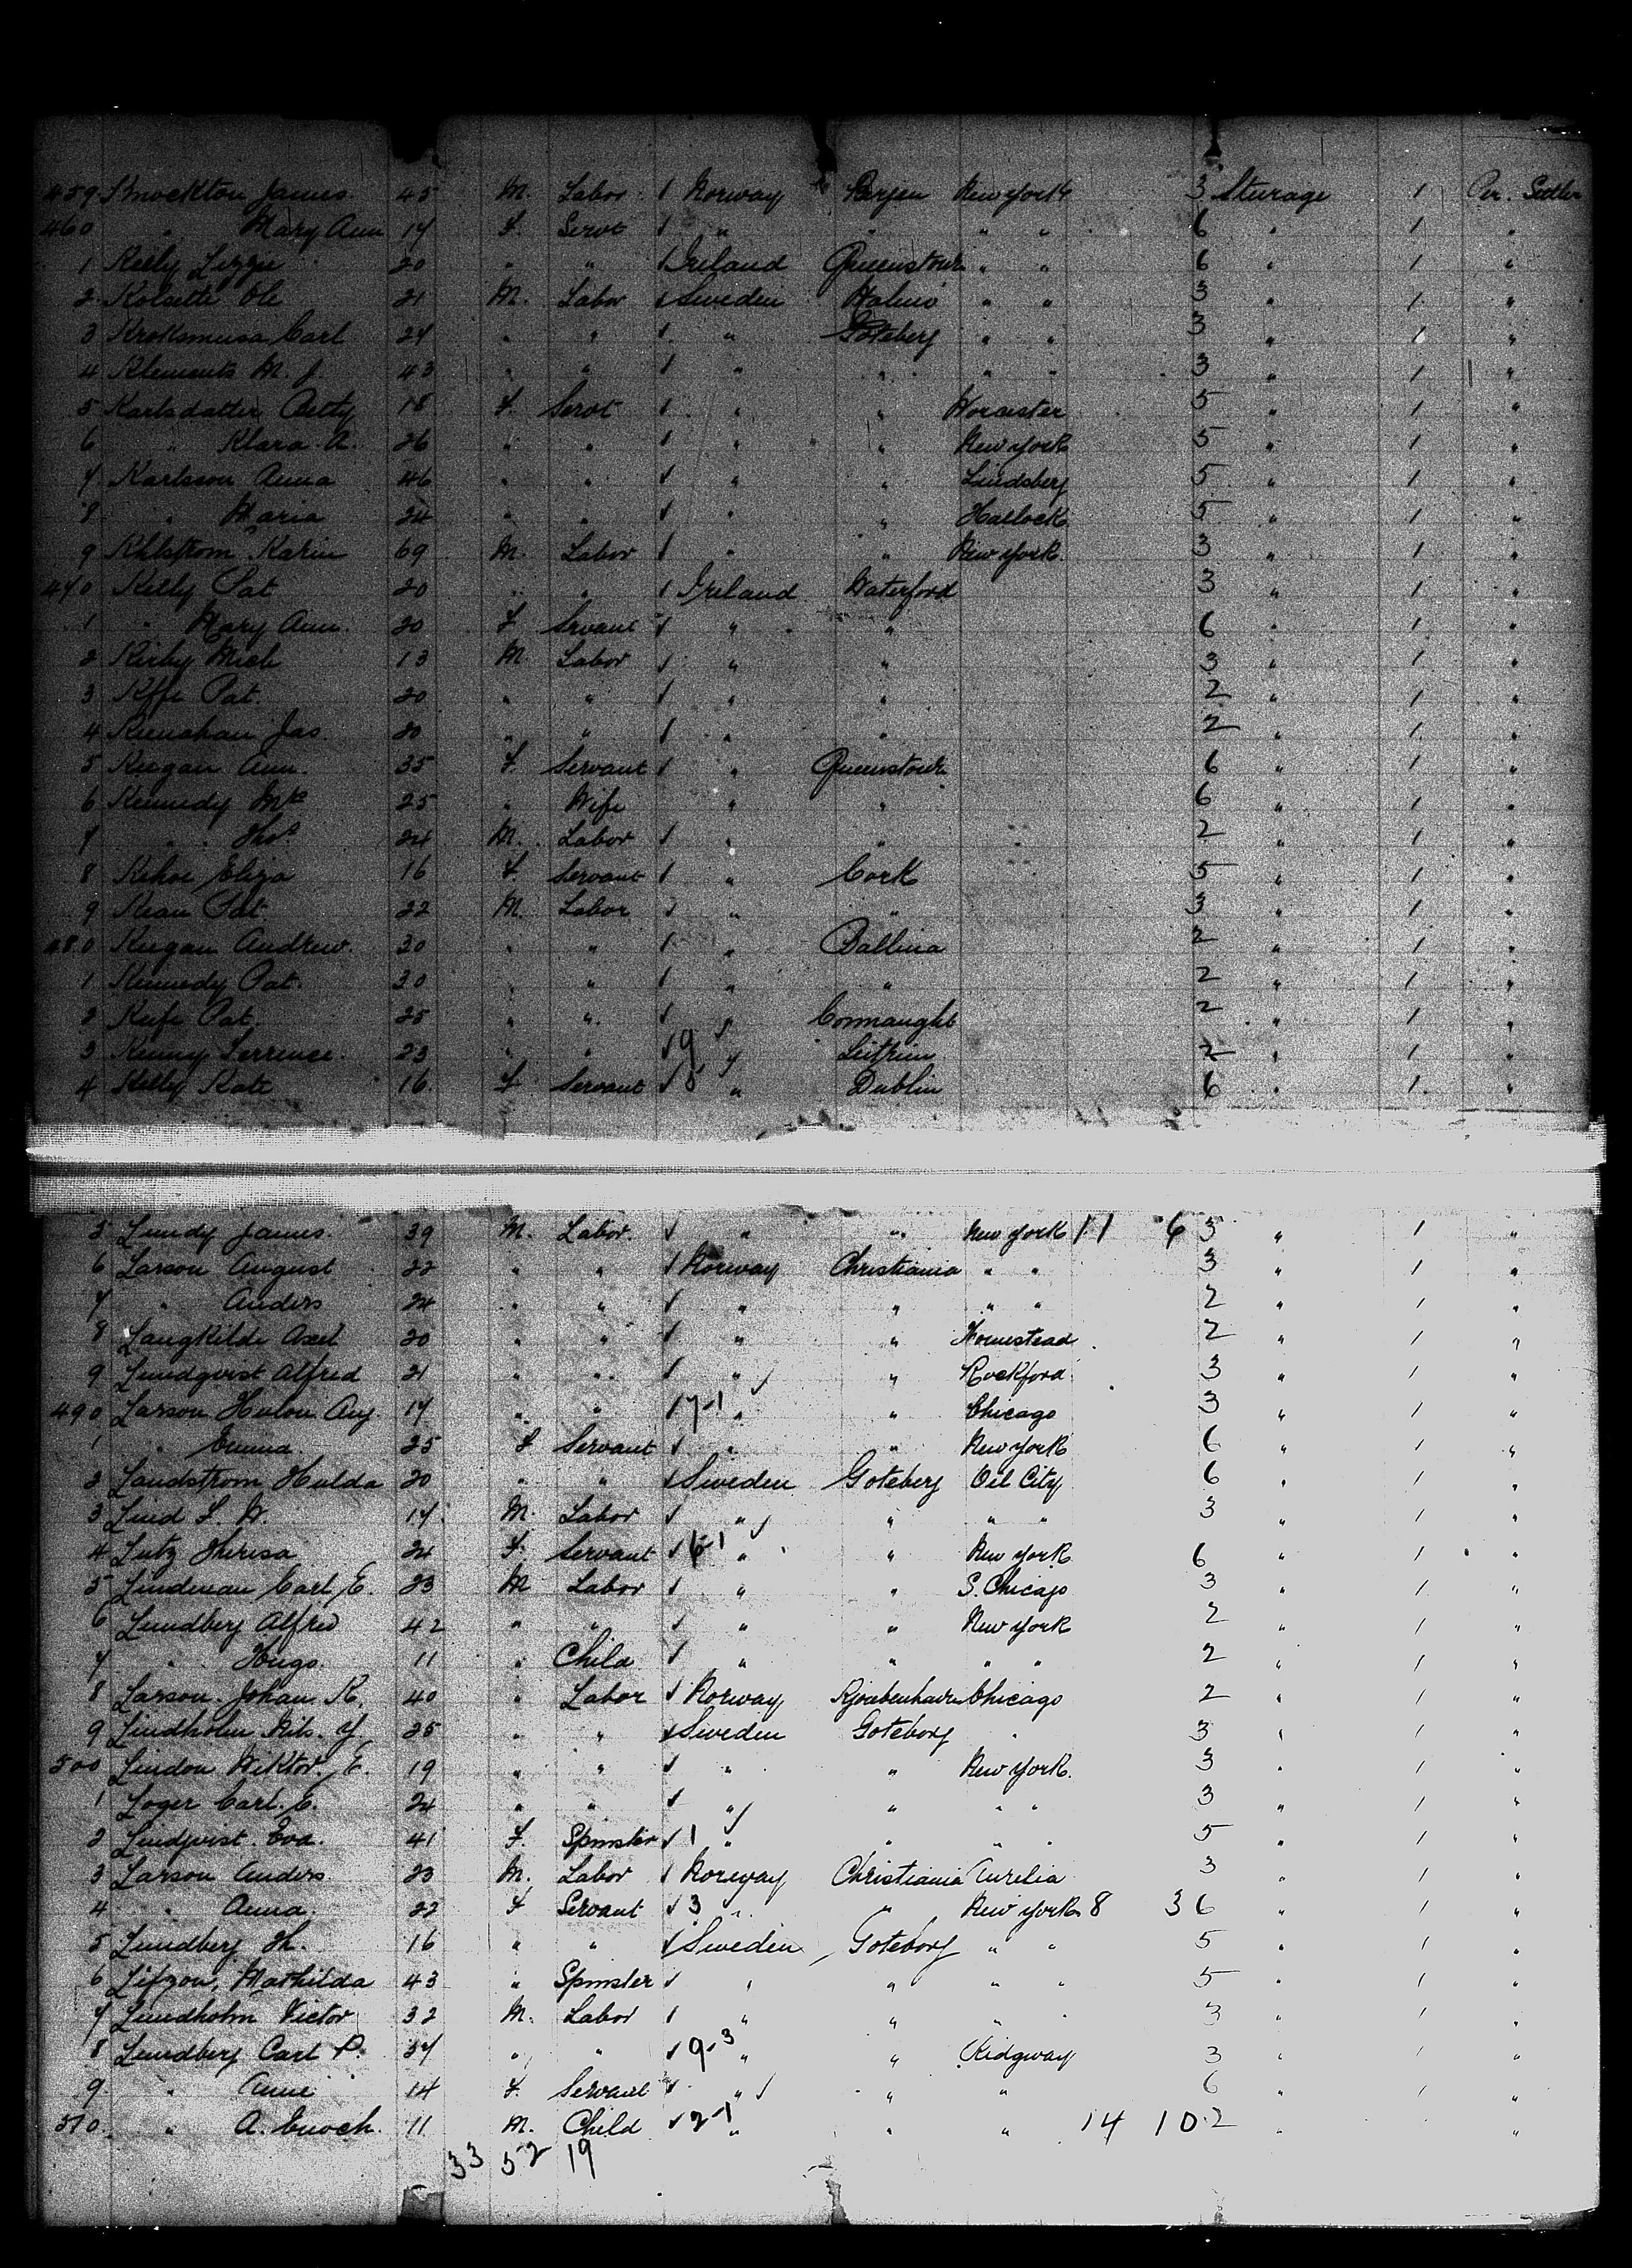 459 James 45 M. Labor 1 Norway Bergen New York 3 Sturage 1 Per. Settler
460 " Mary Ann 17 F. Servt 1 " " " " 6 " 1 "
1 Kelly Lizzie 20 " " 1 Ireland Queenstown " " 6 " 1 "
2 Kolsette Ole 21 M. Labor 1 Sweden Malmo " " 3 " 1 "
3 Carl 24 " " 1 " Goteberg " " 3 " 1 "
4 Klements M. J. 43 " " 1 " " " " 3 " 1 "
5 Karlsdatter Betty 18 F. Servt 1 " " Worcester 5 " 1 "
6 " Klara A. 26 " " 1 " " New York 5 " 1 "
7 Karlsson Anna 46 " " 1 " " Lindsberg 5 " 1 "
8 " Maria 24 " " 1 " " Hallock 5 " 1 "
9 Khlstrom Karin 69 M. Labor 1 " " New York 3 " 1 "
470 Kelly Pat 20 " " 1 Ireland Waterford 3 " 1 "
1 " Mary Ann 20 F Servant 1 " " 6 " 1 "
2 Kirby Mich 13 M. Labor 1 " " 3 " 1 "
3 Kffe Pat. 20 " " 1 " " 2 " 1 "
4 Keenahan Jas. 20 " " 1 " " 2 " 1 "
5 Keegan Ann. 35 F. Servant 1 " Queenstown 6 " 1 "
6 Kennedy Mrs 25 " Wife " " 6 " 1 "
7 " Thos 24 M. Labor 1 " " 2 " 1 "
8 Kehoe Eliza 16 F. Servant 1 " Cork 5 " 1 "
9 Kean Pat 22 M. Labor 1 " " 3 " 1 "
480 Keegan Andrew 30 " " 1 " Ballina 2 " 1 "
1 Kennedy Pat. 30 " " 1 " " 2 " 1 "
2 Keefe Pat. 25 " " 1 " Connaught 2 " 1 "
3 Kenny Terrence. 23 " " 1 9 " Leitrim 2 " 1 "
4 Kelly Kate 16 F Servant 1 8 " Dublin 6 " 1 "
5 Lundy James. 39 M. Labor. 1 " " New York 11 6 3 " 1 "
6 Larson August 22 " " 1 Norway Christiania " " 3 " 1 "
7 " Anders 24 " " 1 " " " " 2 " 1 "
8 Langkilde Axel 20 " " 1 " " Homestead 2 " 1 "
9 Lundqvist Alfred 21 " " 1 " " Rockford 3 " 1 "
490 Larson Aug. 17 " " 1 7-1 " " Chicago 3 " 1 "
1 " Emma 25 F Servant 1 " " New York 6 " 1 "
2 Landstrom Hulda 20 " " 1 Sweden Goteberg Oil City 6 " 1 "
3 Lind L. W. 17 M. Labor 1 " " " " 3 " 1 "
4 Lutz Theresa 24 F. Servant 1 6-1 " " New York 6 " 1 "
5 Lindman Carl E. 23 M Labor 1 " " S. Chicago 3 " 1 "
6 Lundberg Alfred 42 " " 1 " " New York 2 " 1 "
7 " Hugo. 11 " Child 1 " " " " 2 " 1 "
8 Larson Johan K. 40 " Labor 1 Norway Kjoebenhavn Chicago 2 " 1 "
9 Lindholm Nils. Y. 25 " " 1 Sweden Goteborg " 3 " 1 "
500 Lindon Wiktor. E. 19 " " 1 " " New York. 3 " 1 "
1 Loger Carl. E. 24 " " 1 " " " " 3 " 1 "
2 Lindqvist Eva. 41 F. Spinster 1 1 " " " " 5 " 1 "
3 Larson Anders 23 M. Labor 1 Norway Christiania Aurelia 3 " 1 "
4 " Anna. 22 F Servant 1 3 " " New York 8 3 6 " 1 "
5 Lundberg Th. 16 " " 1 Sweden Goteborg " " 5 " 1 "
6 Mathilda 43 " Spinster 1 " " " " 5 " 1 "
7 Lundholm Victor 32 M. Labor 1 " " " " 3 " 1 "
8 Lundberg Carl P. 37 " " 1 9-3 " " Ridgway 3 " 1 "
9 " Anne 14 F. Servant 1 " " " 6 " 1 "
510 " A. Enoch. 11 M. Child 1 2-1 " " " 14 10 2 " "
33 52 19